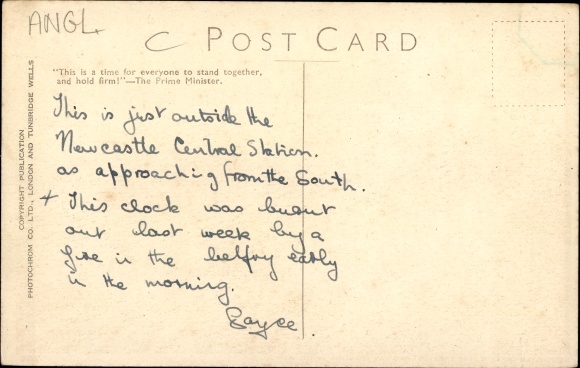 ANGL.
C POST CARD
"This is a time for everyone to stand together,
and hold firm!"—The Prime Minister.
COPYRIGHT PUBLICATION
PHOTOCHROM CO. LTD., LONDON AND TUNBRIDGE WELLS
This is just outside the
Newcastle Central Station.
as approaching from the South.
+ This clock was burnt
out last week by a
fire in the belfry early
in the morning.